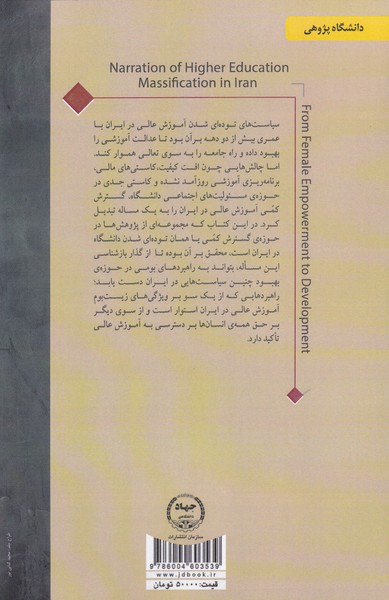 دانشگاه پژوهی
Narration of Higher Education
Massification in Iran
From Female Empowerment to Development
سیاست‌های توده‌ای شدن آموزش عالی در ایران با
عمری بیش از دو دهه بر آن بود تا عدالت آموزشی را
بهبود داده و راه جامعه را به سوی تعالی هموار کند.
اما چالش‌هایی چون افت کیفیت، کاستی‌های مالی،
برنامه‌ریزی آموزشی روزآمد نشده و کاستی جدی در
حوزه‌ی مسئولیت‌های اجتماعی دانشگاه، گسترش
کمّی آموزش عالی در ایران را به یک مساله تبدیل
کرد. در این کتاب که مجموعه‌ای از پژوهش‌ها در
حوزه‌ی گسترش کمّی یا همان توده‌ای شدن دانشگاه
در ایران است، محقق بر آن بوده تا از گذار بازشناسی
این مسأله، بتواند به راهبردهای بومی در حوزه‌ی
بهبود چنین سیاست‌هایی در ایران دست یابد؛
راهبردهایی که از یک سو بر ویژگی‌های زیست‌بوم
آموزش عالی در ایران استوار است و از سوی دیگر
بر حق همه‌ی انسان‌ها بر دسترسی به آموزش عالی
تأکید دارد.
جهاد
دانشگاهی
سازمان انتشارات
9 786004 603539
www.jdbook.ir
قیمت: ۵۰۰۰۰ تومان